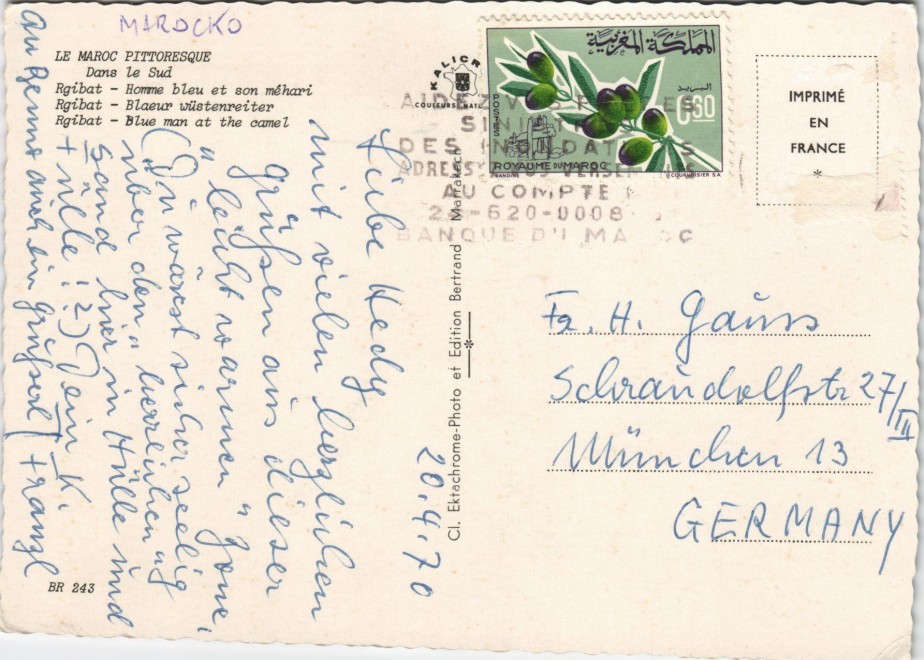 MAROCKO
LE MAROC PITTORESQUE
Dans le Sud
Rgibat - Homme bleu et son méhari
Rgibat - Blaeur wüstenreiter
Rgibat - Blue man at the camel
20.4.70
Liebe Hedy
mit vielen herzlichen
Grüßen aus dieser
"leicht warmen" Zone!
(Du wärst sicher seelig
über den "herrlichen"
Sand hier in Hülle und
+ Fülle!?) Dein K.
auch ein Grüßerl Franzl
BR 243
KALICR
COULEURS NATU
المملكة المغربية
البريد
0,30
POSTES
ROYAUME DU MAROC
GANDINI
COURVOISIER S.A.
AIDEZ VOS FRERES
SINISTRES
DES INONDATIONS
ADRESSEZ VOS VERSEMENTS
AU COMPTE
620-0008
BANQUE DU MAROC
Cl. Ektachrome-Photo et Edition Bertrand - Marrakech
IMPRIMÉ
EN
FRANCE
*
Fr. H. Gauss
Schraudolfstr 27/III
München 13
GERMANY